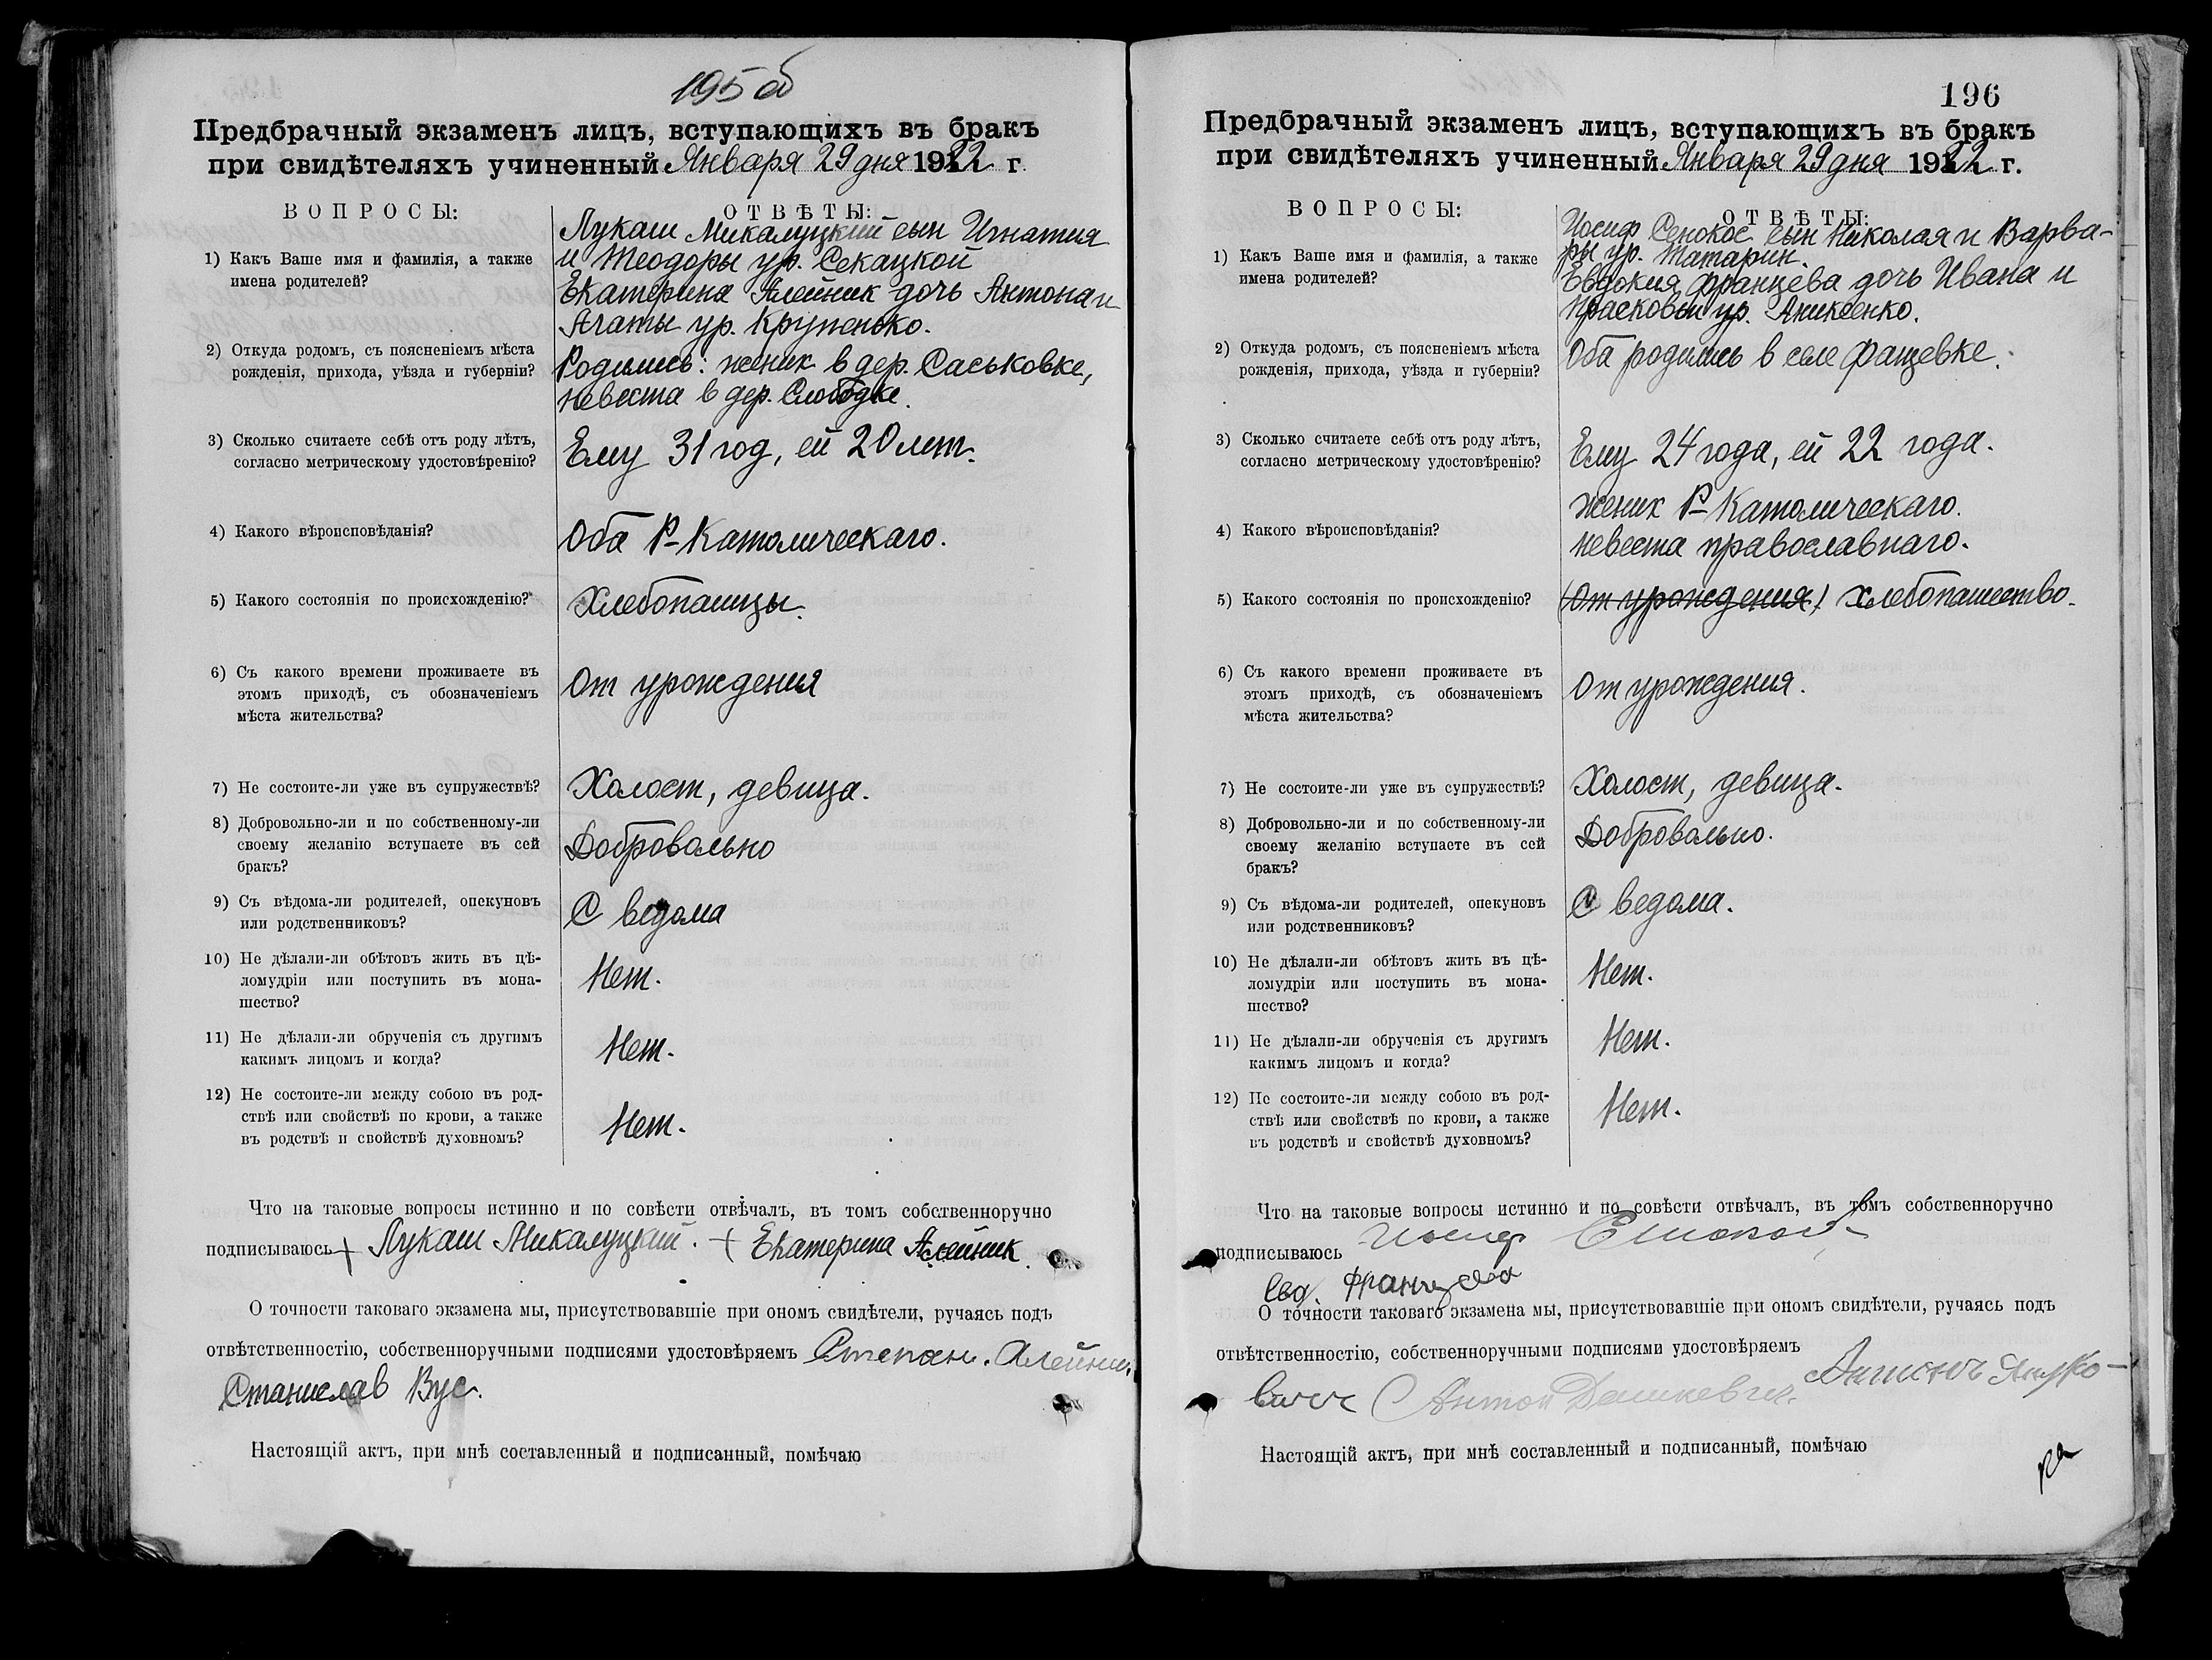 195 об
Предбрачный экзаменъ лицъ, вступающихъ въ бракъ
при свидѣтеляхъ учиненный Января 29 дня 1922 г.
ВОПРОСЫ:
ОТВѢТЫ:
1) Какъ Ваше имя и фамилія, а также
имена родителей?
Лукаш Микалуцкий сын Игнатия
и Теодоры ур. Секацкой
Екатерина Алейник дочь Антона и
Агаты ур. Крупенько.
2) Откуда родомъ, съ поясненіемъ мѣста
рожденія, прихода, уѣзда и губерніи?
Родились: жених в дер. Саськовке,
невеста в дер. Слободке.
3) Сколько считаете себѣ отъ роду лѣтъ,
согласно метрическому удостовѣренію?
Ему 31 год, ей 20 лет.
4) Какого вѣроисповѣданія?
Оба Р-Католическаго.
5) Какого состоянія по происхожденію?
Хлебопашцы.
6) Съ какого времени проживаете въ
этомъ приходѣ, съ обозначеніемъ
мѣста жительства?
От урождения
7) Не состоите-ли уже въ супружествѣ?
Холост, девица.
8) Добровольно-ли и по собственному-ли
своему желанію вступаете въ сей
бракъ?
Добровольно
9) Съ вѣдома-ли родителей, опекуновъ
или родственниковъ?
С ведома
10) Не дѣлали-ли обѣтовъ жить въ цѣ-
ломудріи или поступить въ мона-
шество?
Нет.
11) Не дѣлали-ли обрученія съ другимъ
какимъ лицомъ и когда?
Нет.
12) Не состоите-ли между собою въ род-
ствѣ или свойствѣ по крови, а также
въ родствѣ и свойствѣ духовномъ?
Нет.
Что на таковые вопросы истинно и по совѣсти отвѣчалъ, въ томъ собственноручно
подписываюсь + Лукаш Микалуцкий. + Екатерина Алейник
О точности таковаго экзамена мы, присутствовавшіе при ономъ свидѣтели, ручаясь подъ
отвѣтственностію, собственноручными подписями удостовѣряемъ Степан. Алейник.
Станислав Вус.
Настоящій актъ, при мнѣ составленный и подписанный, помѣчаю
196
Предбрачный экзаменъ лицъ, вступающихъ въ бракъ
при свидѣтеляхъ учиненный Января 29 дня 1922 г.
ВОПРОСЫ:
ОТВѢТЫ:
1) Какъ Ваше имя и фамилія, а также
имена родителей?
Иосиф Сенокос сын Николая и Варва-
ры ур. Татарин.
Евдокия Францева дочь Ивана и
Прасковьи ур. Аниксенко.
2) Откуда родомъ, съ поясненіемъ мѣста
рожденія, прихода, уѣзда и губерніи?
Оба родились в селе Фащевке.
3) Сколько считаете себѣ отъ роду лѣтъ,
согласно метрическому удостовѣренію?
Ему 24 года, ей 22 года.
4) Какого вѣроисповѣданія?
жених Р-Католическаго.
невеста православнаго.
5) Какого состоянія по происхожденію?
(От урождения) Хлебопашество.
6) Съ какого времени проживаете въ
этомъ приходѣ, съ обозначеніемъ
мѣста жительства?
От урождения.
7) Не состоите-ли уже въ супружествѣ?
Холост, девица.
8) Добровольно-ли и по собственному-ли
своему желанію вступаете въ сей
бракъ?
Добровольно.
9) Съ вѣдома-ли родителей, опекуновъ
или родственниковъ?
С ведома.
10) Не дѣлали-ли обѣтовъ жить въ цѣ-
ломудріи или поступить въ мона-
шество?
Нет.
11) Не дѣлали-ли обрученія съ другимъ
какимъ лицомъ и когда?
Нет.
12) Не состоите-ли между собою въ род-
ствѣ или свойствѣ по крови, а также
въ родствѣ и свойствѣ духовномъ?
Нет.
Что на таковые вопросы истинно и по совѣсти отвѣчалъ, въ томъ собственноручно
подписываюсь Иосиф
Евд. Францева
О точности таковаго экзамена мы, присутствовавшіе при ономъ свидѣтели, ручаясь подъ
отвѣтственностію, собственноручными подписями удостовѣряемъ
Антон Дашкевич.
Настоящій актъ, при мнѣ составленный и подписанный, помѣчаю